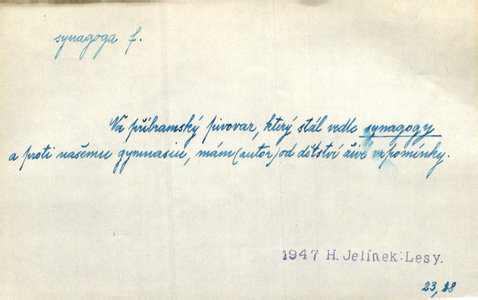 synagoga f.
Na příbramský pivovar, který stál vedle synagogy
a proti našemu gymnasiu, mám (autor) od dětství živé vzpomínky.
1947 H. Jelínek: Lesy.
23, 28